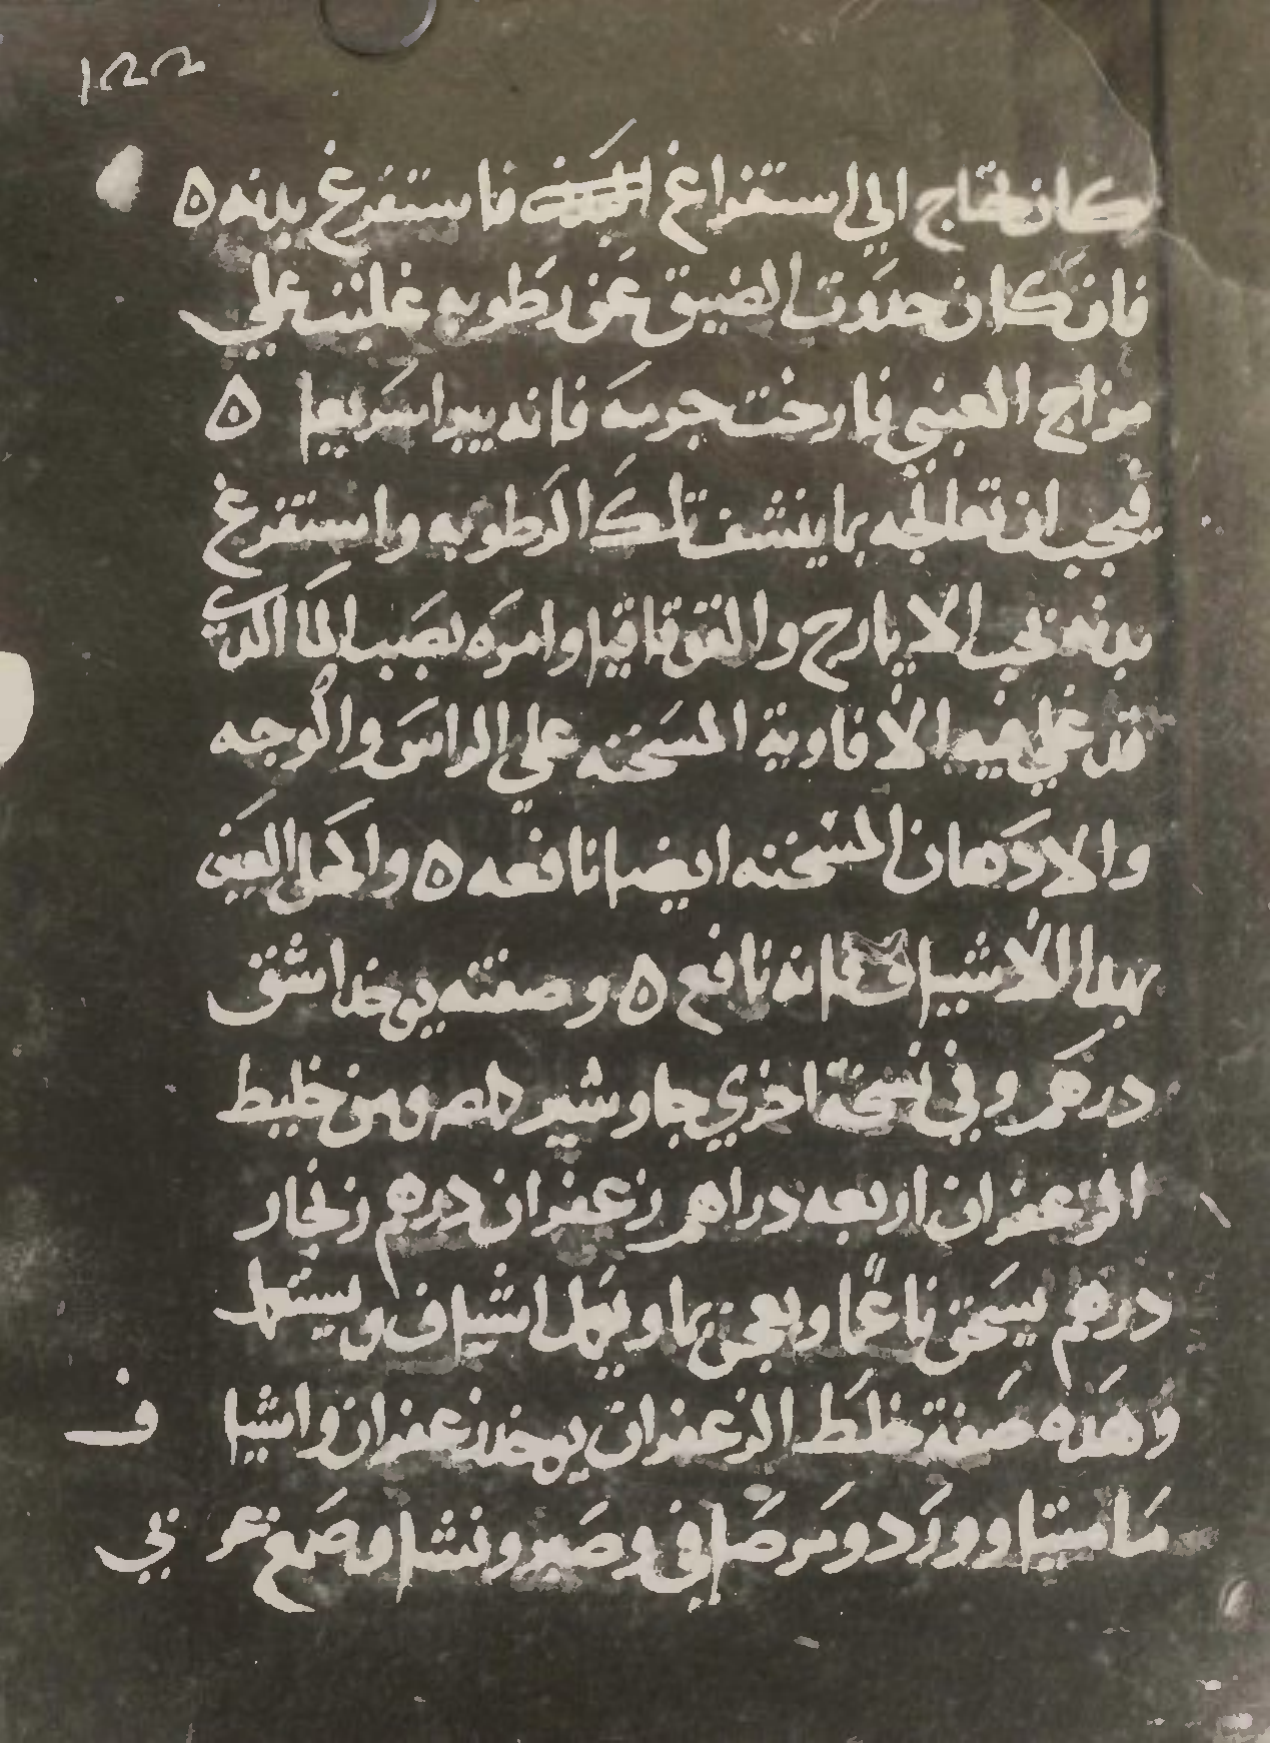 ١٢٢
كان يحتاج الي استفراغ فاستفرغ بدنه ه
فان كان حدوت الضيق عن رطوبه غلبت علي
مزاج العنبي فارخت جرمه فانه يبرا سريعا ه
فيجب ان تعالجه بما ينشف تلك الرطوبه واستفرغ
بدنه بحب الايارج والقوقايا وامره بصب الما الذي
قد غلي فيه الافاوية المسخنه علي الراس والوجه
والادهان المسخنه ايضا نافعه ه واكحل العين
بهدا الاشياف فانه نافع ه وصفته يوخذ اشق
درهم وفي نسخة اخري جاوشير ومن خليط
الزعفران اربعه دراهم زعفران درهم زنجار
درهم يسحق ناعمًا ويعجن بما ويعمل اشياف ويستعمل
وهذه صفة خلط الزعفران يوخذ زعفران واشياف
ماميثا وورد ومر صافي وصبر ونشا وصمغ عربي